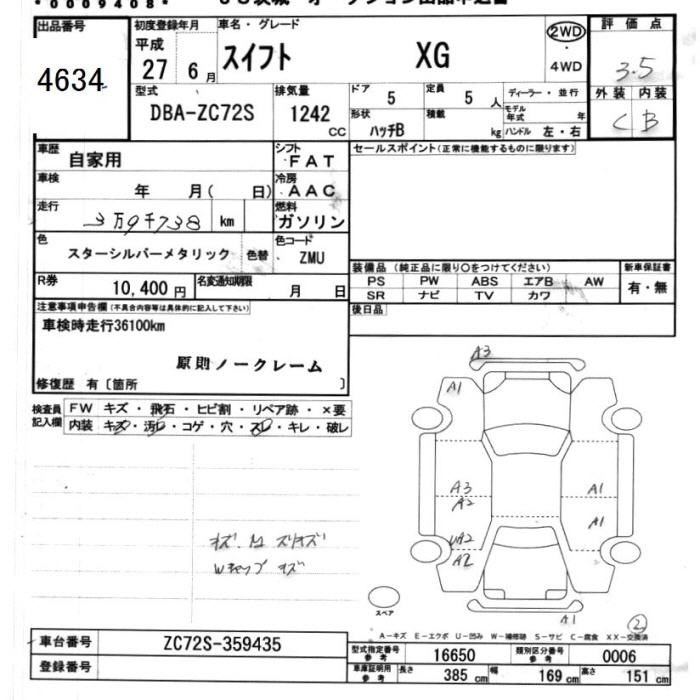 *0009408*
出品番号 4634
初度登録年月 平成 27 6月
車名・グレード スイフト XG
2WD・4WD
評価点 3.5
外装 内装
C B
型式 DBA-ZC72S
排気量 1242 CC
ドア 5
定員 5 人
ディーラー・並行
形状 ハッチB
積載 kg
モデル年式 年
ハンドル 左・右
車歴 自家用
シフト FAT
セールスポイント(正常に機能するものに限ります)
車検 年 月( 日)
冷房 AAC
走行 3万9千738 km
燃料 ガソリン
色 スターシルバーメタリック 色替
色コード ZMU
装備品(純正品に限り〇をつけてください) 新車保証書
PS PW ABS エアB AW 有・無
SR ナビ TV カワ
R券 10,400円
名変通知期限 月 日
後日品
注意事項申告欄(不具合内容等は具体的に記入して下さい)
車検時走行36100km
原則ノークレーム
修復歴 有〔箇所 〕
検査員記入欄
FW キズ・飛石・ヒビ割・リペア跡・×要
内装 キズ・汚レ・コゲ・穴・スレ・キレ・破レ
A3
A1
A3
A2
A1
A1
UA2
A2
A1
スリキズ
Wキャップ キズ
スペア
2
A-キズ E-エクボ U-凹み W-補修跡 S-サビ C-腐食 XX-交換済
車台番号 ZC72S-359435
型式指定番号 参考 16650
類別区分番号 参考 0006
登録番号
車庫証明用 参考 長さ 385 cm 幅 169 cm 高さ 151 cm